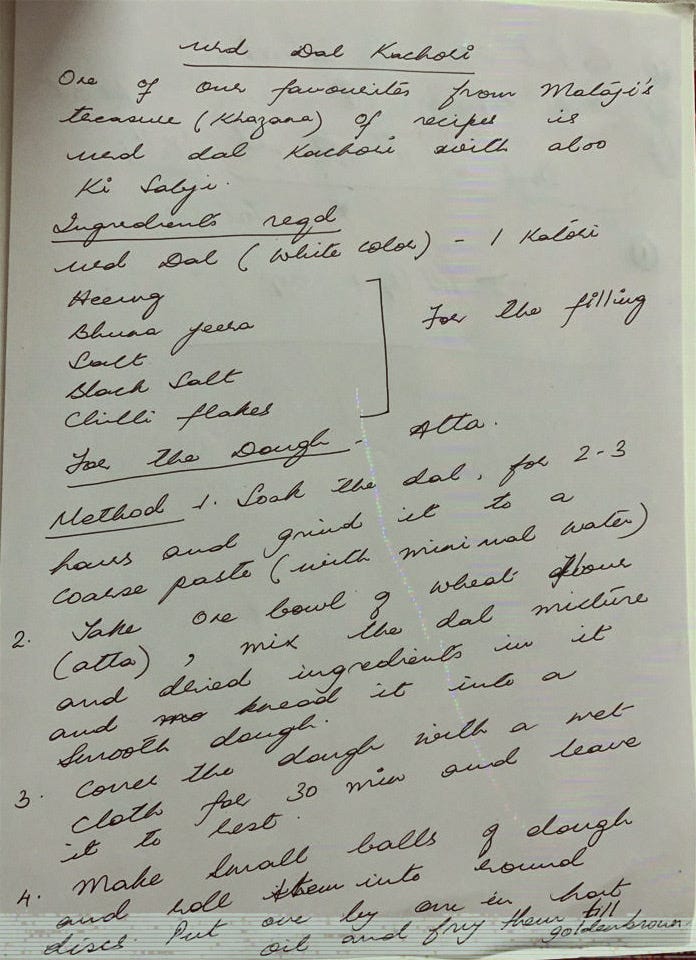 Urd Dal Kachori
One of our favourites from Mataji's
treasure (Khazana) of recipes is
urd dal Kachori with aloo
Ki Sabji.
Ingredients reqd
Urd Dal (White color) - 1 Katori
Heeng
Bhuna jeera
Salt
Black Salt
Chilli flakes
For the filling
For the Dough - Atta.
Method 1. Soak the dal, for 2-3
hours and grind it to a
coarse paste (with minimal water)
2. Take one bowl of wheat flour
(atta), mix the dal mixture
and dried ingredients in it
and knead it into a
smooth dough.
3. Cover the dough with a wet
cloth for 30 min and leave
it to rest.
4. Make small balls of dough
and roll them into round
discs. Put one by one in hot
oil and fry them till
golden brown.